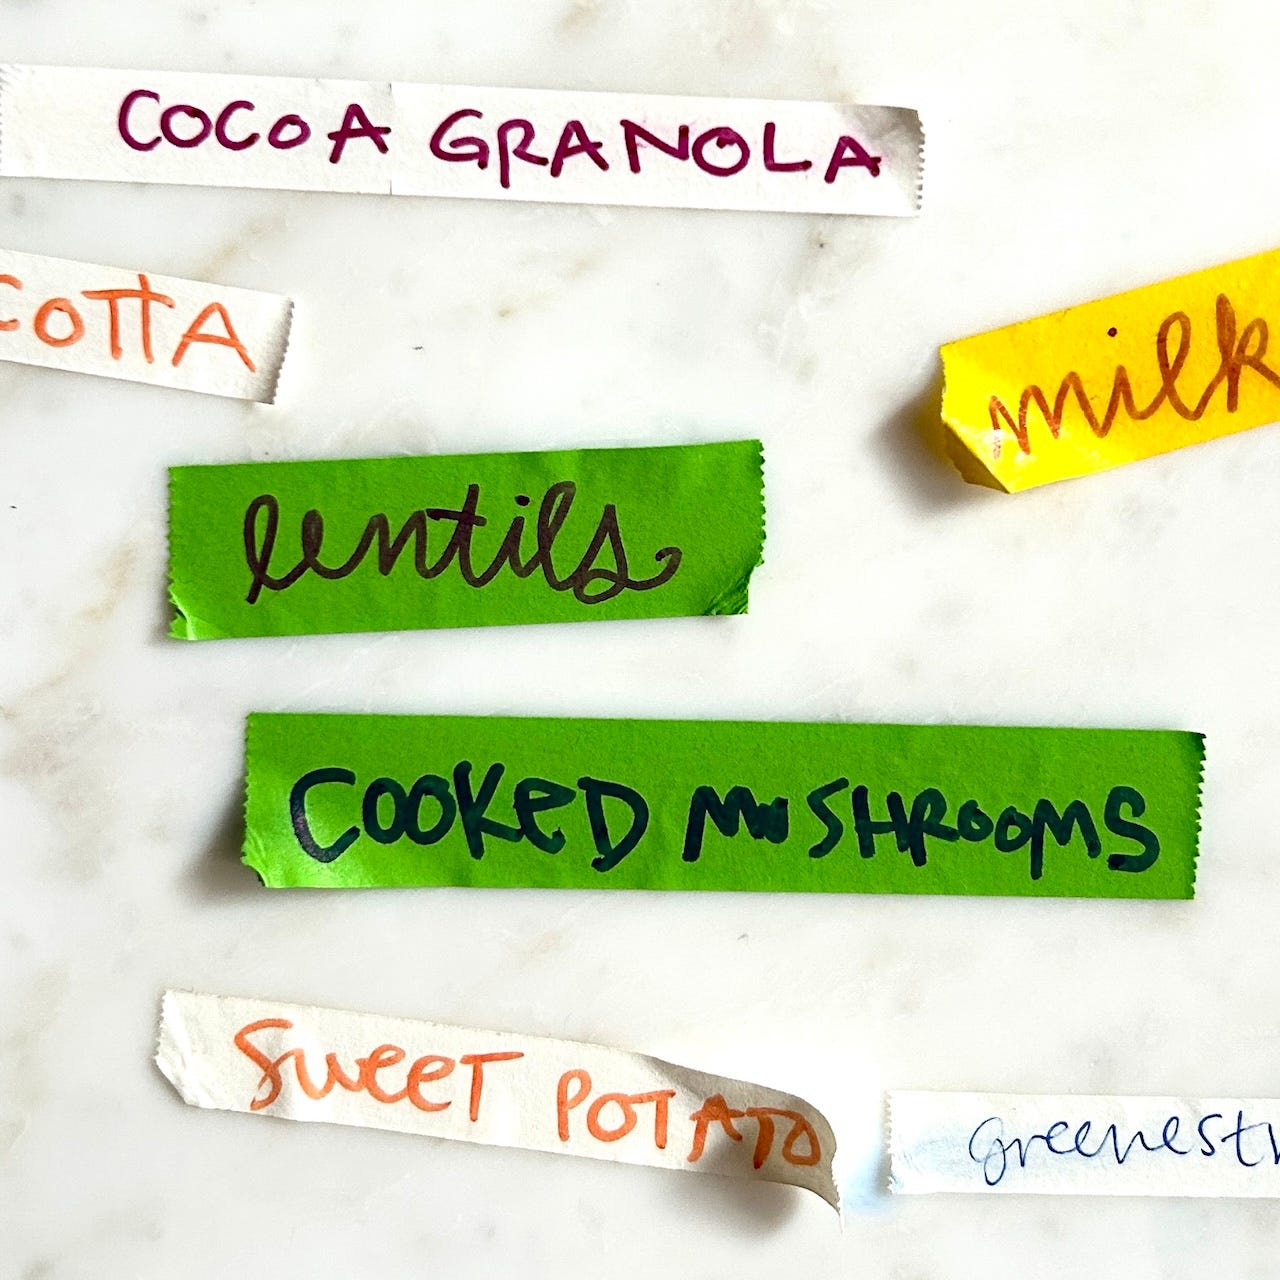 COCOA GRANOLA
COTTA
milk
lentils
COOKED MUSHROOMS
SWEET POTATO